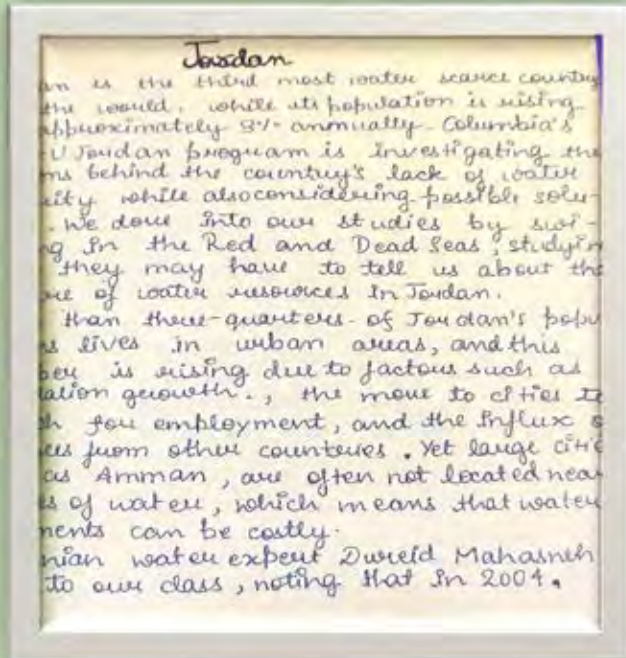 Jordan
an is the third most water scarce country
the would, while its population is rising
approximately 3% annually. Columbia's
U Jordan program is investigating the
ns behind the country's lack of water
ity while also considering possible solu-
. We dove into our studies by swi-
g in the Red and Dead Seas, studyin
they may have to tell us about the
ure of water resources in Jordan.
than three-quarters of Jordan's popu
s lives in urban areas, and this
ber is rising due to factors such as
lation growth., the move to cities to
h for employment, and the influx o
ees from other counteries. Yet large citie
as Amman, are often not located near
s of water, which means that water
ments can be costly.
nian water expert Dureid Mahasneh
to our class, noting that in 2004.